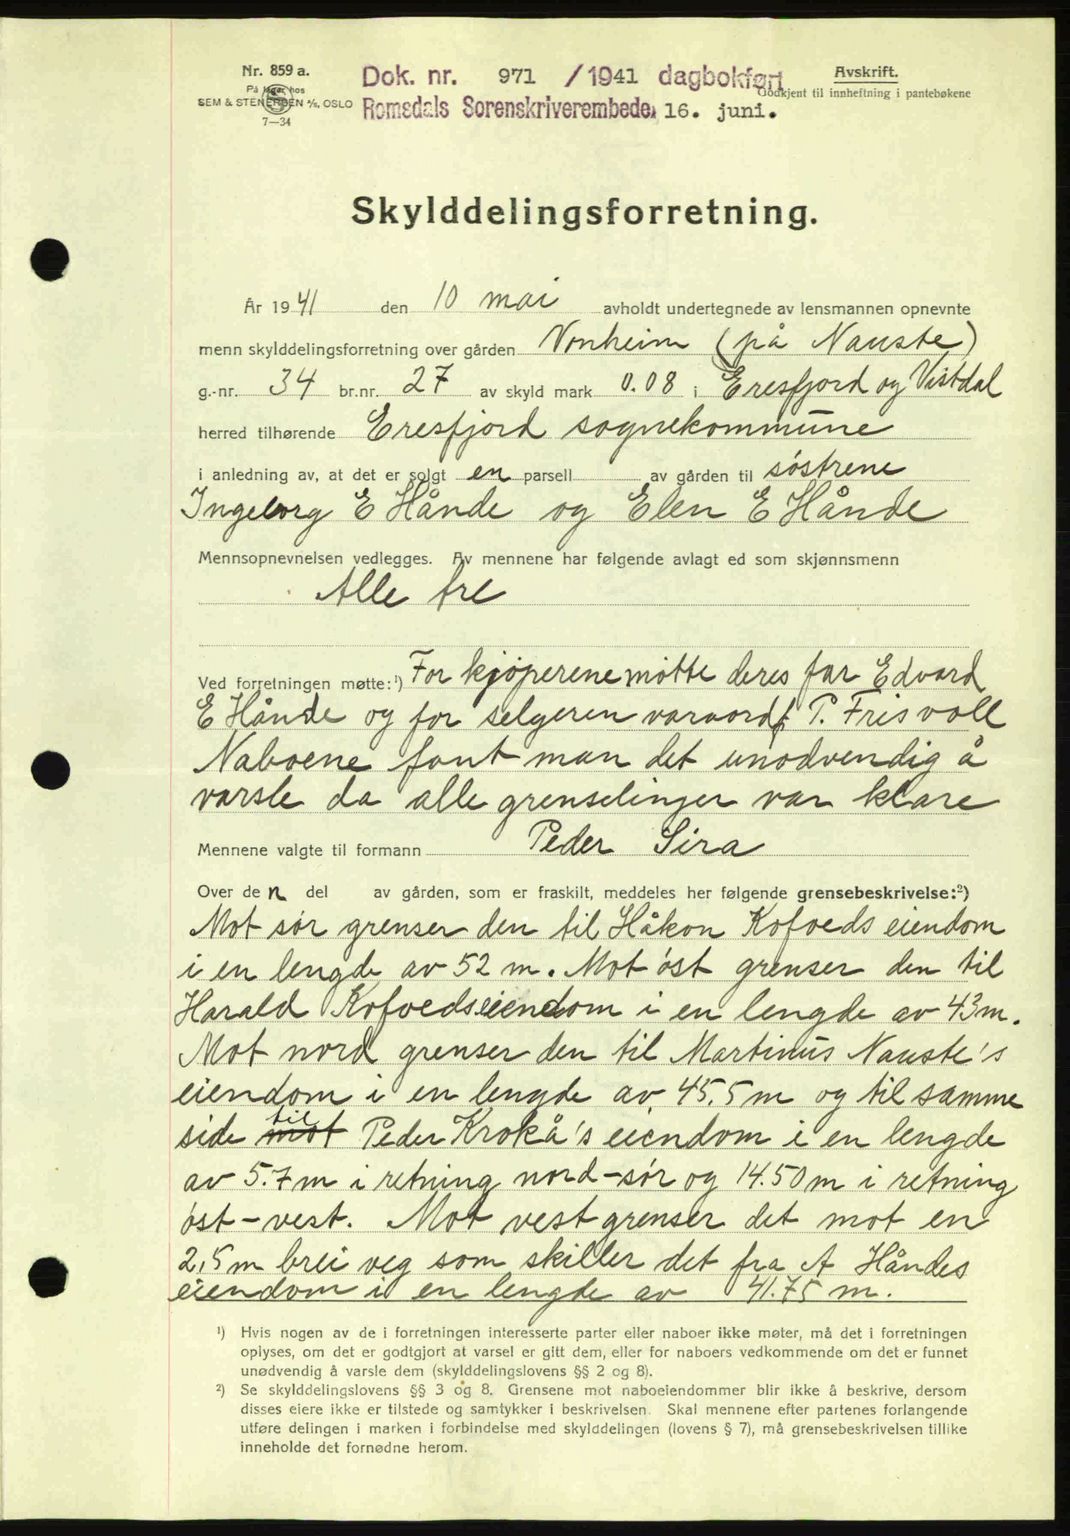 Nr. 859 a.
På lager hos
SEM & STENERSEN A/S, OSLO
7—34
Dok. nr. 971 /1941 dagbokført
Romsdals Sorenskriverembede, 16. juni.
Avskrift.
Godkjent til innheftning i pantebøkene
Skylddelingsforretning.
År 1941 den 10 mai avholdt undertegnede av lensmannen opnevnte
menn skylddelingsforretning over gården Vonheim (på Nauste)
g.-nr. 34 br.nr. 27 av skyld mark 0.08 i Eresfjord og Vistdal
herred tilhørende Eresfjord sognekommune
i anledning av, at det er solgt en parsell av gården til søstrene
Ingeborg E Hånde og Elen E Hånde
Mennsopnevnelsen vedlegges. Av mennene har følgende avlagt ed som skjønnsmenn
Alle tre
Ved forretningen møtte:¹) For kjøperene møtte deres far Edvard
E Hånde og for selgeren varaordf P. Frisvoll
Naboene fant man det unødvendig å
varsle da alle grenselinjer var klare
Mennene valgte til formann Peder Sira
Over den del av gården, som er fraskilt, meddeles her følgende grensebeskrivelse:²)
Mot sør grenser den til Håkon Kofoeds eiendom
i en lengde av 52 m. Mot øst grenser den til
Harald Kofoeds eiendom i en lengde av 43 m.
Mot nord grenser den til Martinus Nauste's
eiendom i en lengde av 45,5 m og til samme
side mot til Peder Krokå's eiendom i en lengde
av 5.7 m i retning nord-sør og 14.50 m i retning
øst-vest. Mot vest grenser det mot en
2,5 m brei veg som skiller det fra A Håndes
eiendom i en lengde av 41.75 m.
¹) Hvis nogen av de i forretningen interesserte parter eller naboer ikke møter, må det i forretningen
oplyses, om det er godtgjort at varsel er gitt dem, eller for naboers vedkommende om det er funnet
unødvendig å varsle dem (skylddelingslovens §§ 2 og 8).
²) Se skylddelingslovens §§ 3 og 8. Grensene mot naboeiendommer blir ikke å beskrive, dersom
disses eiere ikke er tilstede og samtykker i beskrivelsen. Skal mennene efter partenes forlangende
utføre delingen i marken i forbindelse med skylddelingen (lovens § 7), må grensebeskrivelsen tillike
inneholde det fornødne herom.